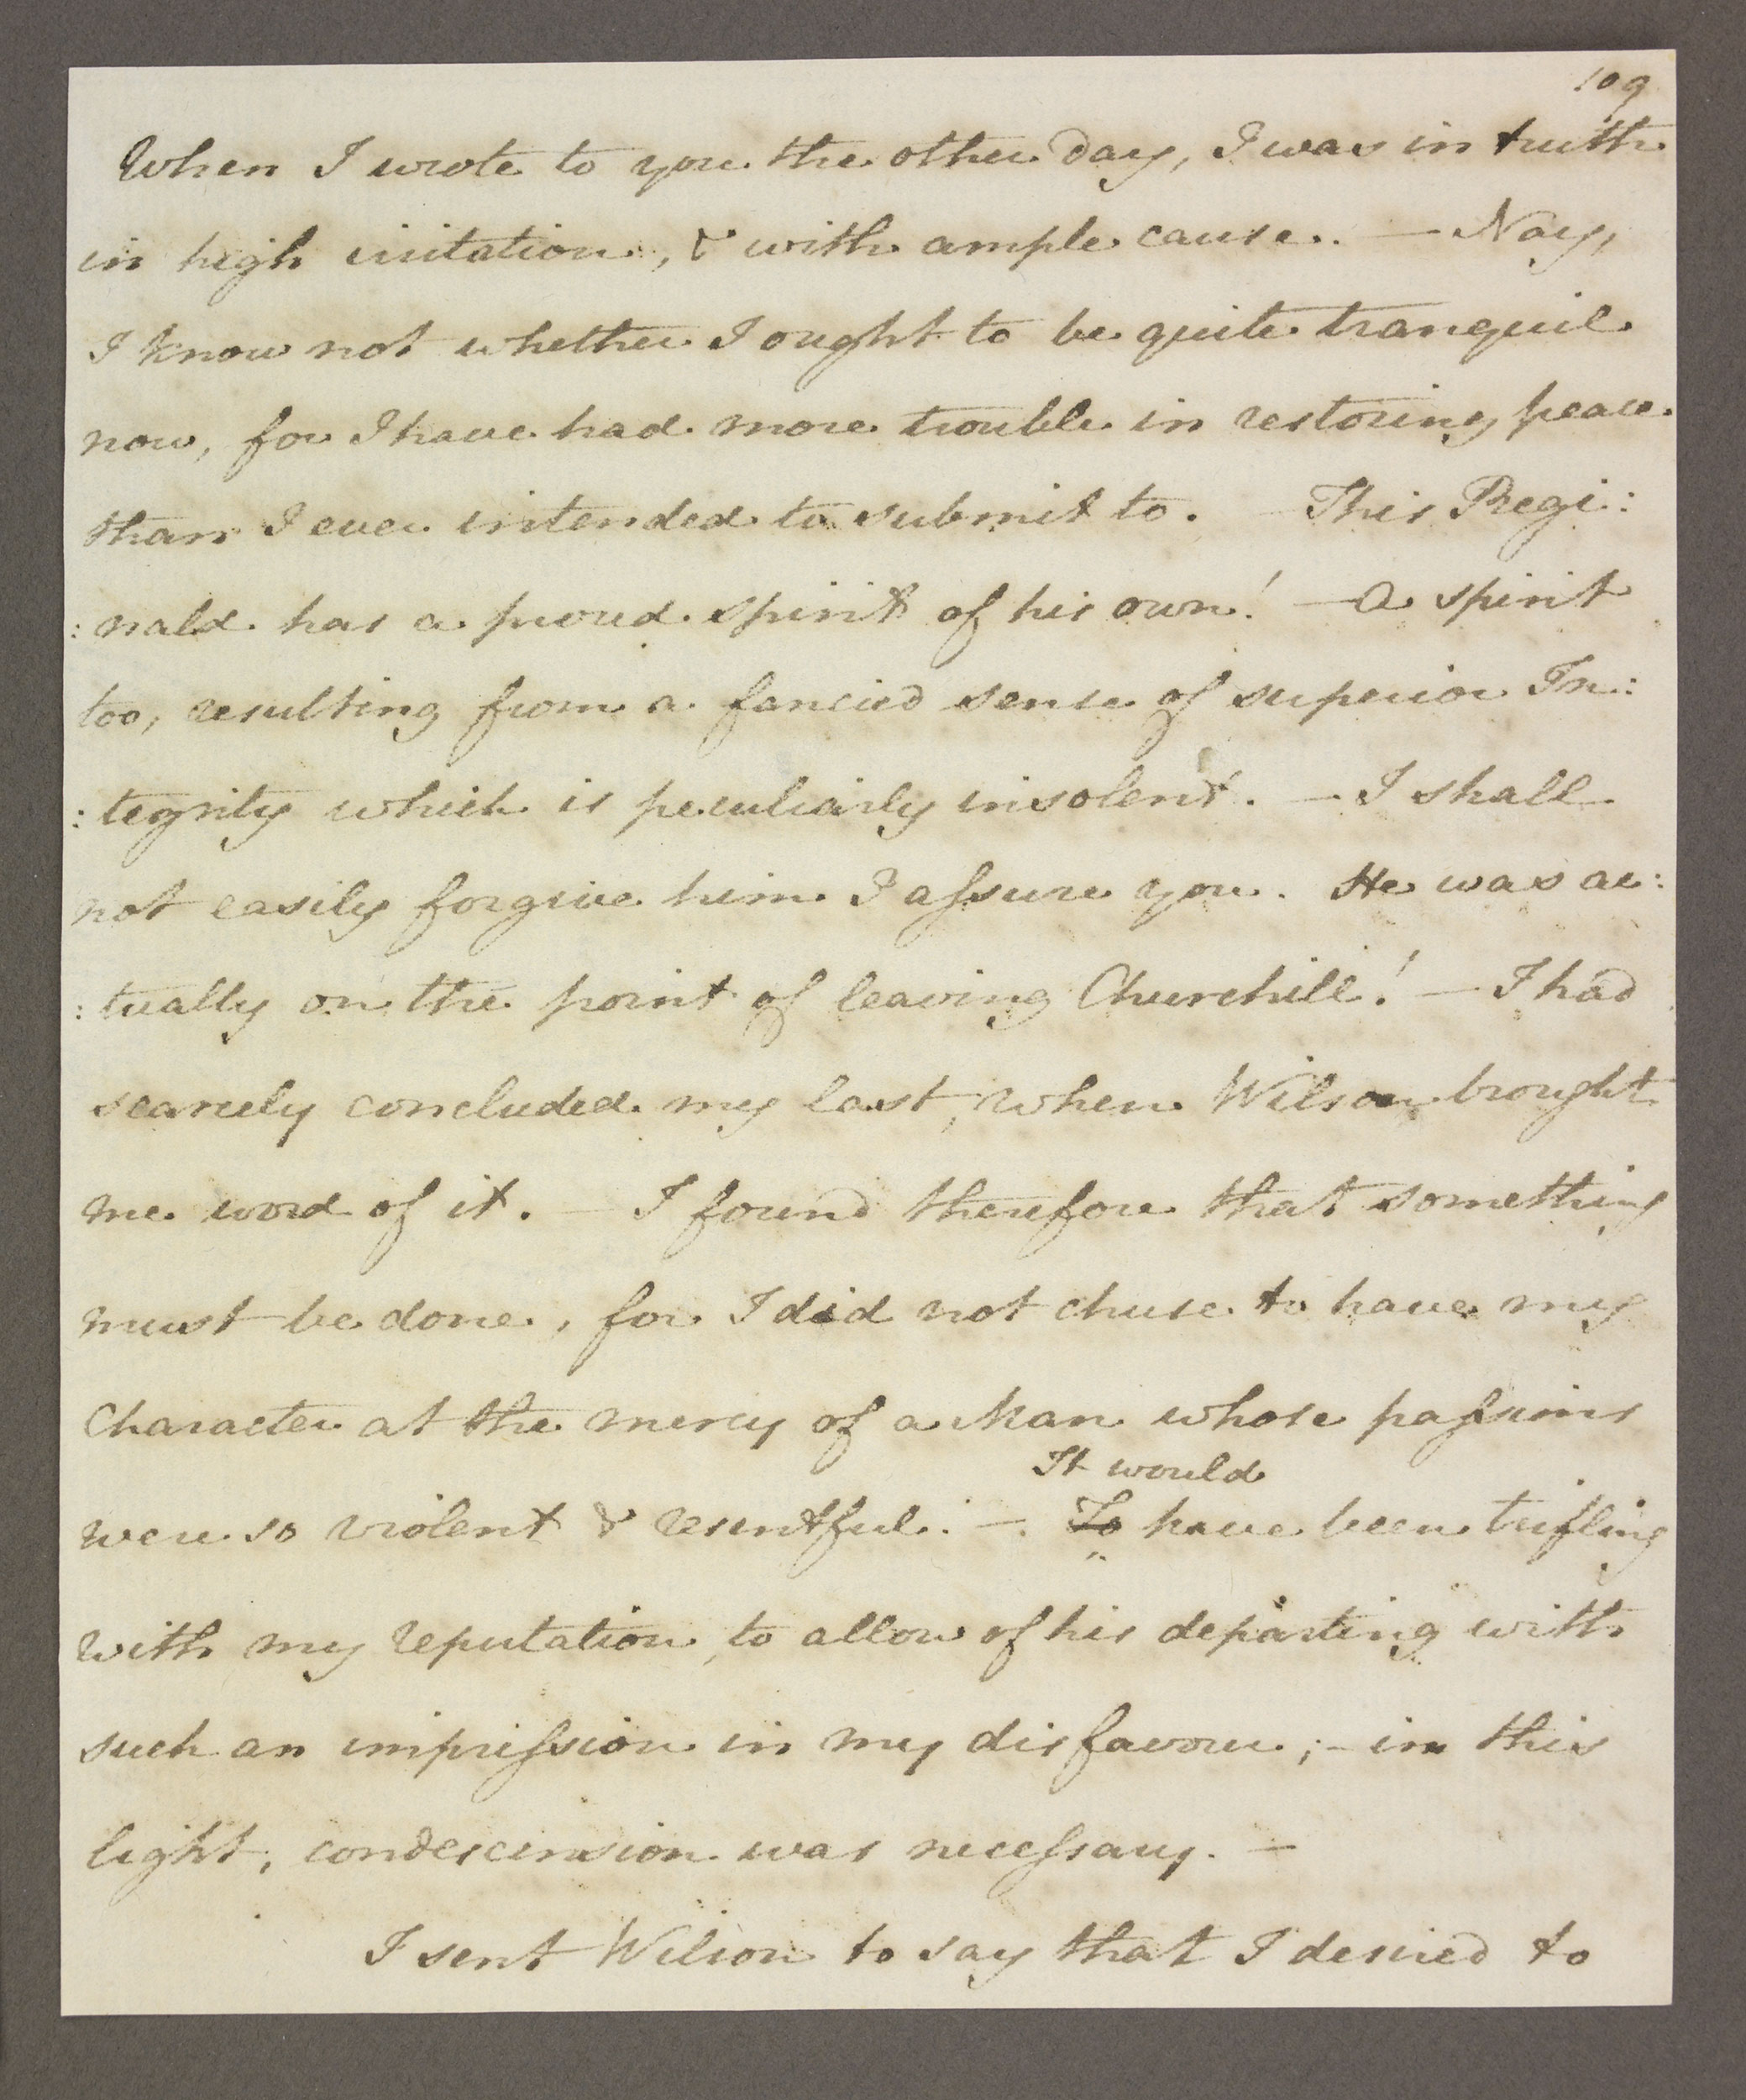 109
When I wrote to you the other day, I was in truth
in high irritation, & with ample cause. — Nay,
I know not whether I ought to be quite tranquil
now, for I have had more trouble in restoring peace
than I ever intended to submit to. — This Regi:
:nald has a proud spirit of his own! — a spirit
too, resulting from a fancied sense of superior In:
:tegrity which is peculiarly insolent. — I shall
not easily forgive him I aſsure you. He was ac:
:tually on the point of leaving Churchill! — I had
scarcely concluded my last, when Wilson brought
me word of it. — I found therefore that something
must be done, for I did not chuse to have my
Character at the mercy of a Man whose paſsions
It would
were so violent & resentful. — To have been trifling
with my reputation, to allow of his departing with
such an impreſsion in my disfavour; — in this
light, condescension was neceſsary. —
I sent Wilson to say that I desired to